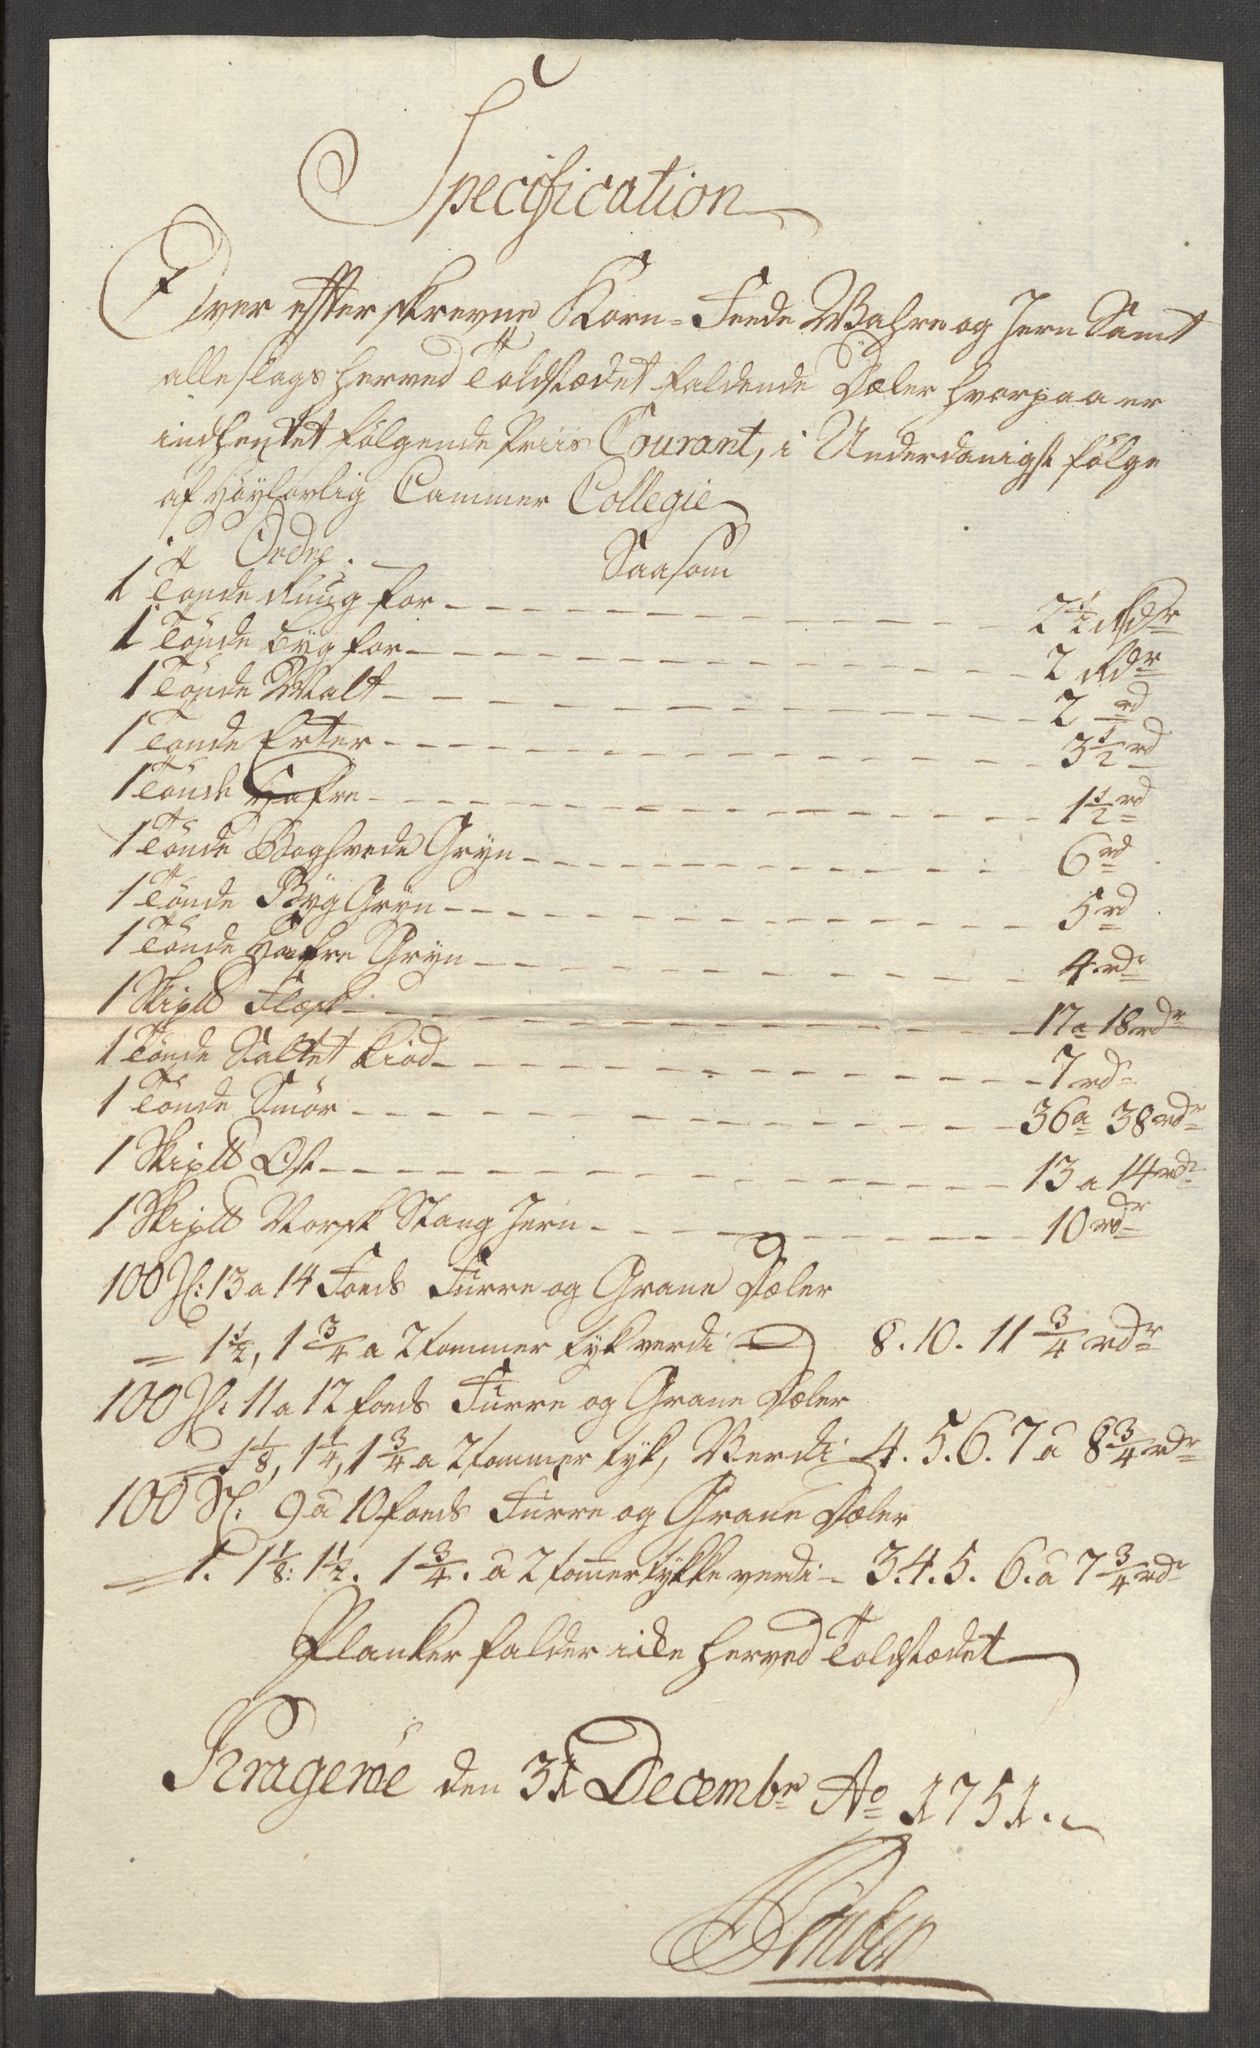 Specification
Over efterskrevne Korn- Feede Wahre og Jern Samt
alle slags herved Toldstædet faldende Dæler hvorpaa er
indhentet følgende Priis Courant, i Underdanigst følge
af Høylovlig Cammer Collegie
Ordre. Saasom
1 Tønde Ruug for 2 1/2 Rdr
1 Tønde Byg for 2 Rdr
1 Tønde Malt 2 rd
1 Tønde Erter 3 1/2 rd
1 Tønde Hafre 1 1/2 rd
1 Tønde Boghvede Gryn 6 rd
1 Tønde Byg Gryn 5 rd
1 Tønde Hafre Gryn 4 rdr
1 Skipll Flæsk 17 a 18 rdr
1 Tønde Saltet Kiød 7 rdr
1 Tønde Smør 36 a 38 rdr
1 Skipll Ost 13 a 14 rdr
1 Skipll Norsk Stang Jern 10 rdr
100 St: 13 a 14 Foeds Furre og Grane Dæler
= 1 1/2, 1 3/4 a 2 tommer tyk verdi 8. 10. 11 3/4 rdr
100 St: 11 a 12 foeds Furre og Grane Dæler
= 1 1/8, 1 1/4, 1 3/4 a 2 tommer tyk, Verdi 4. 5. 6. 7 a 8 3/4 rdr
100 St: 9 a 10 foeds Furre og Grane Dæler
= 1. 1 1/8: 1 1/2. 1 3/4. a 2 tommer tykke verdi 3. 4. 5. 6. a 7 3/4 rdr
Planker falder icke herved Toldstædet
Krageröe den 31 Decembr Ao 1751.